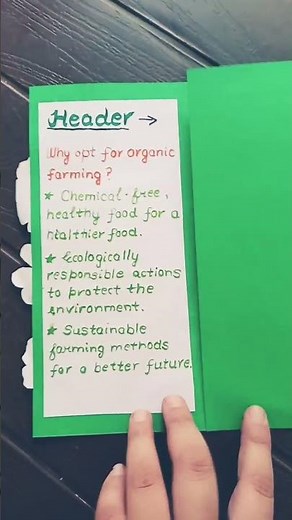 Header →
Why opt for organic
farming?
★ Chemical-free,
healthy food for a
healthier food.
★ Ecologically
responsible actions
to protect the
environment.
★ Sustainable
farming methods
for a better future.